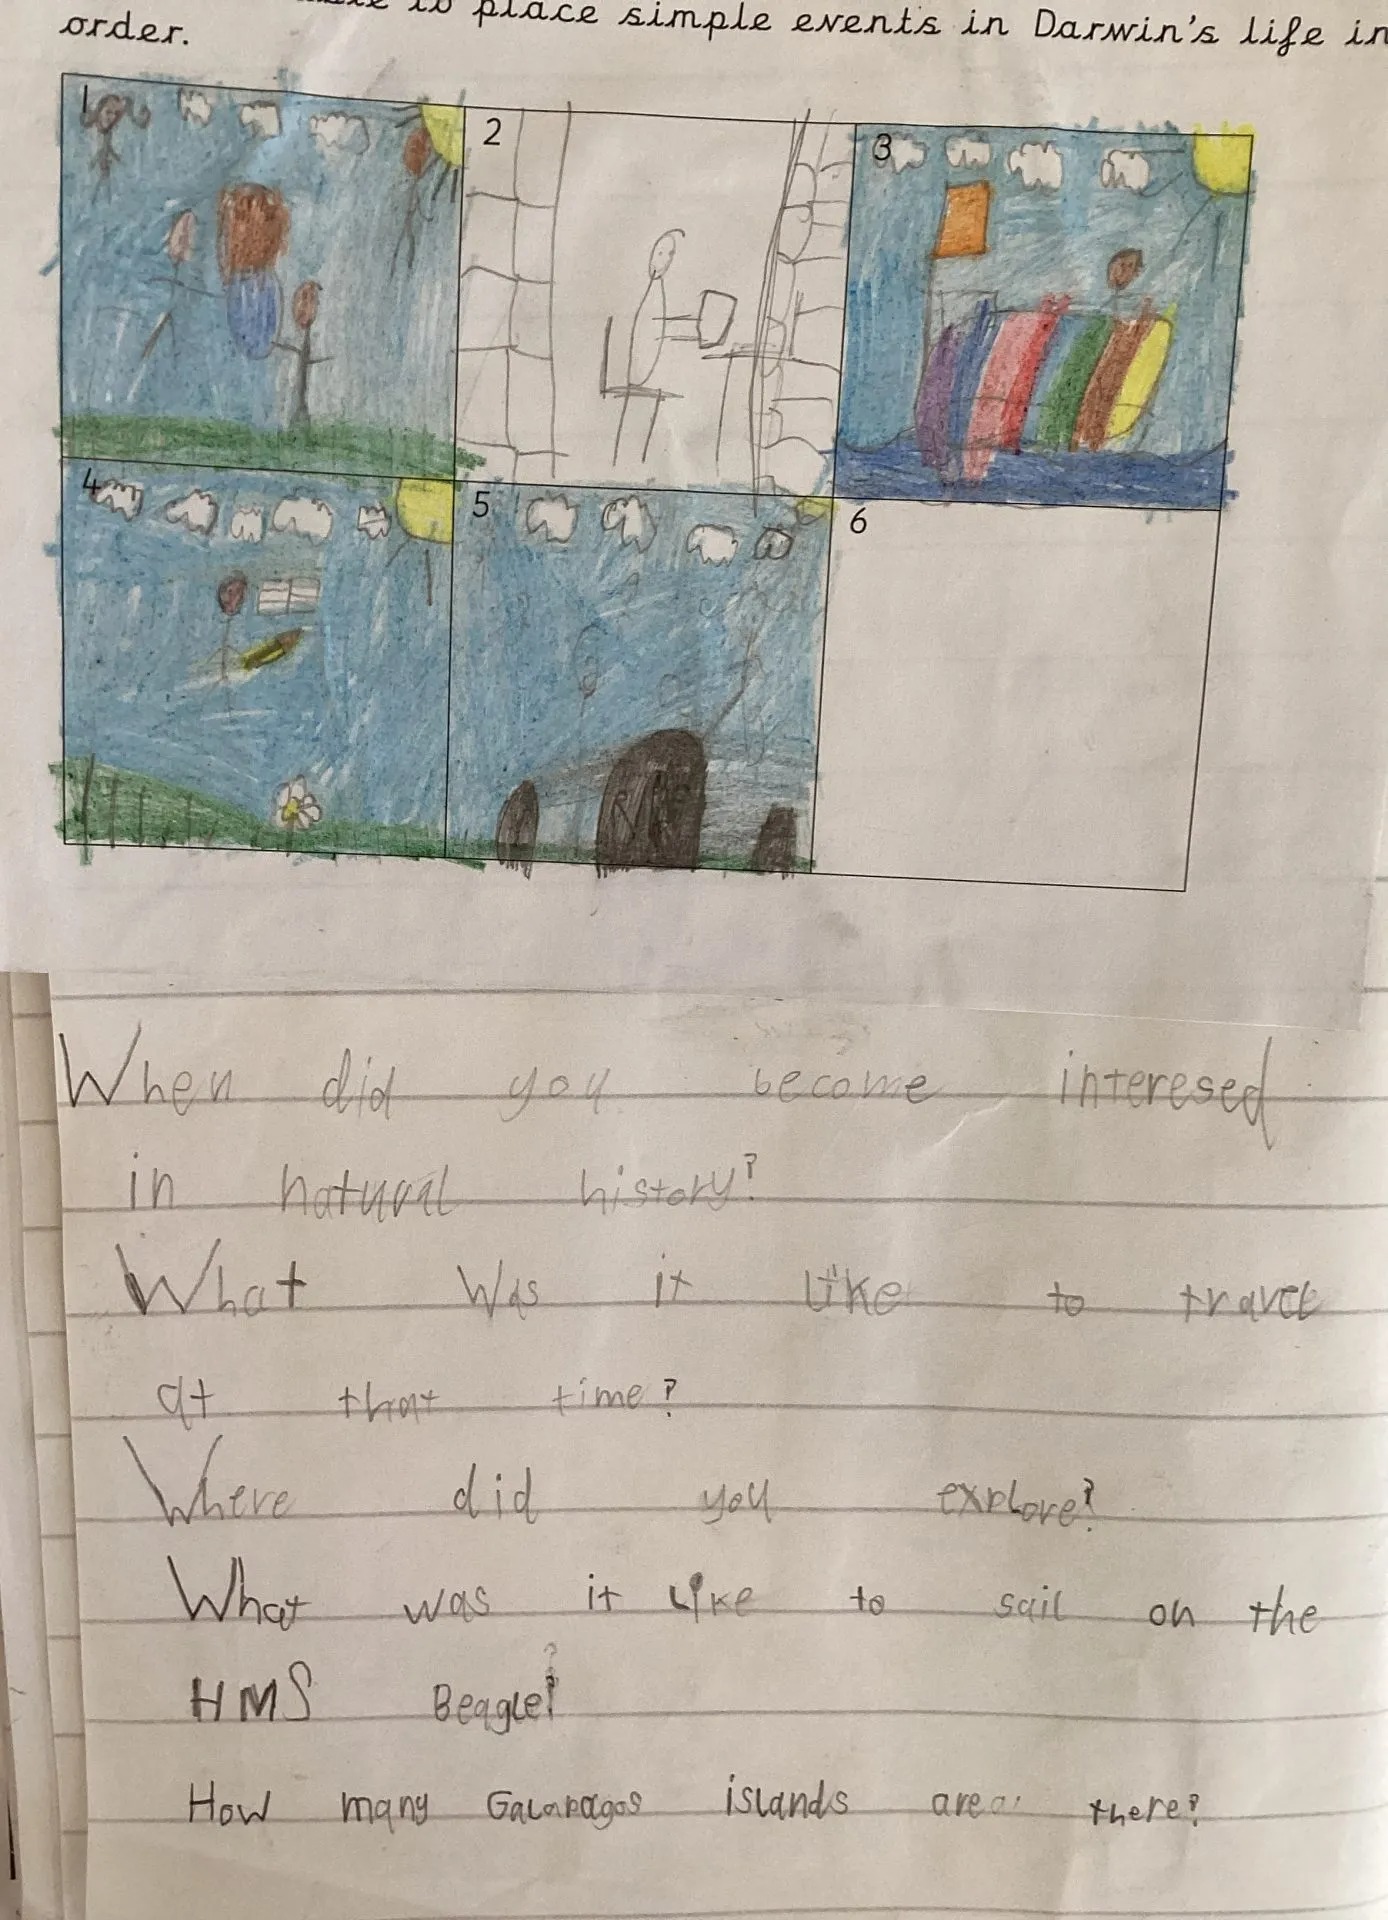 to place simple events in Darwin's life in
order.
1
2
3
4
5
6
When did you become interesed
in natural history?
What was it like to travel
at that time?
Where did you explore?
What was it like to sail on the
HMS Beagle?
How many Galapagos islands are there?